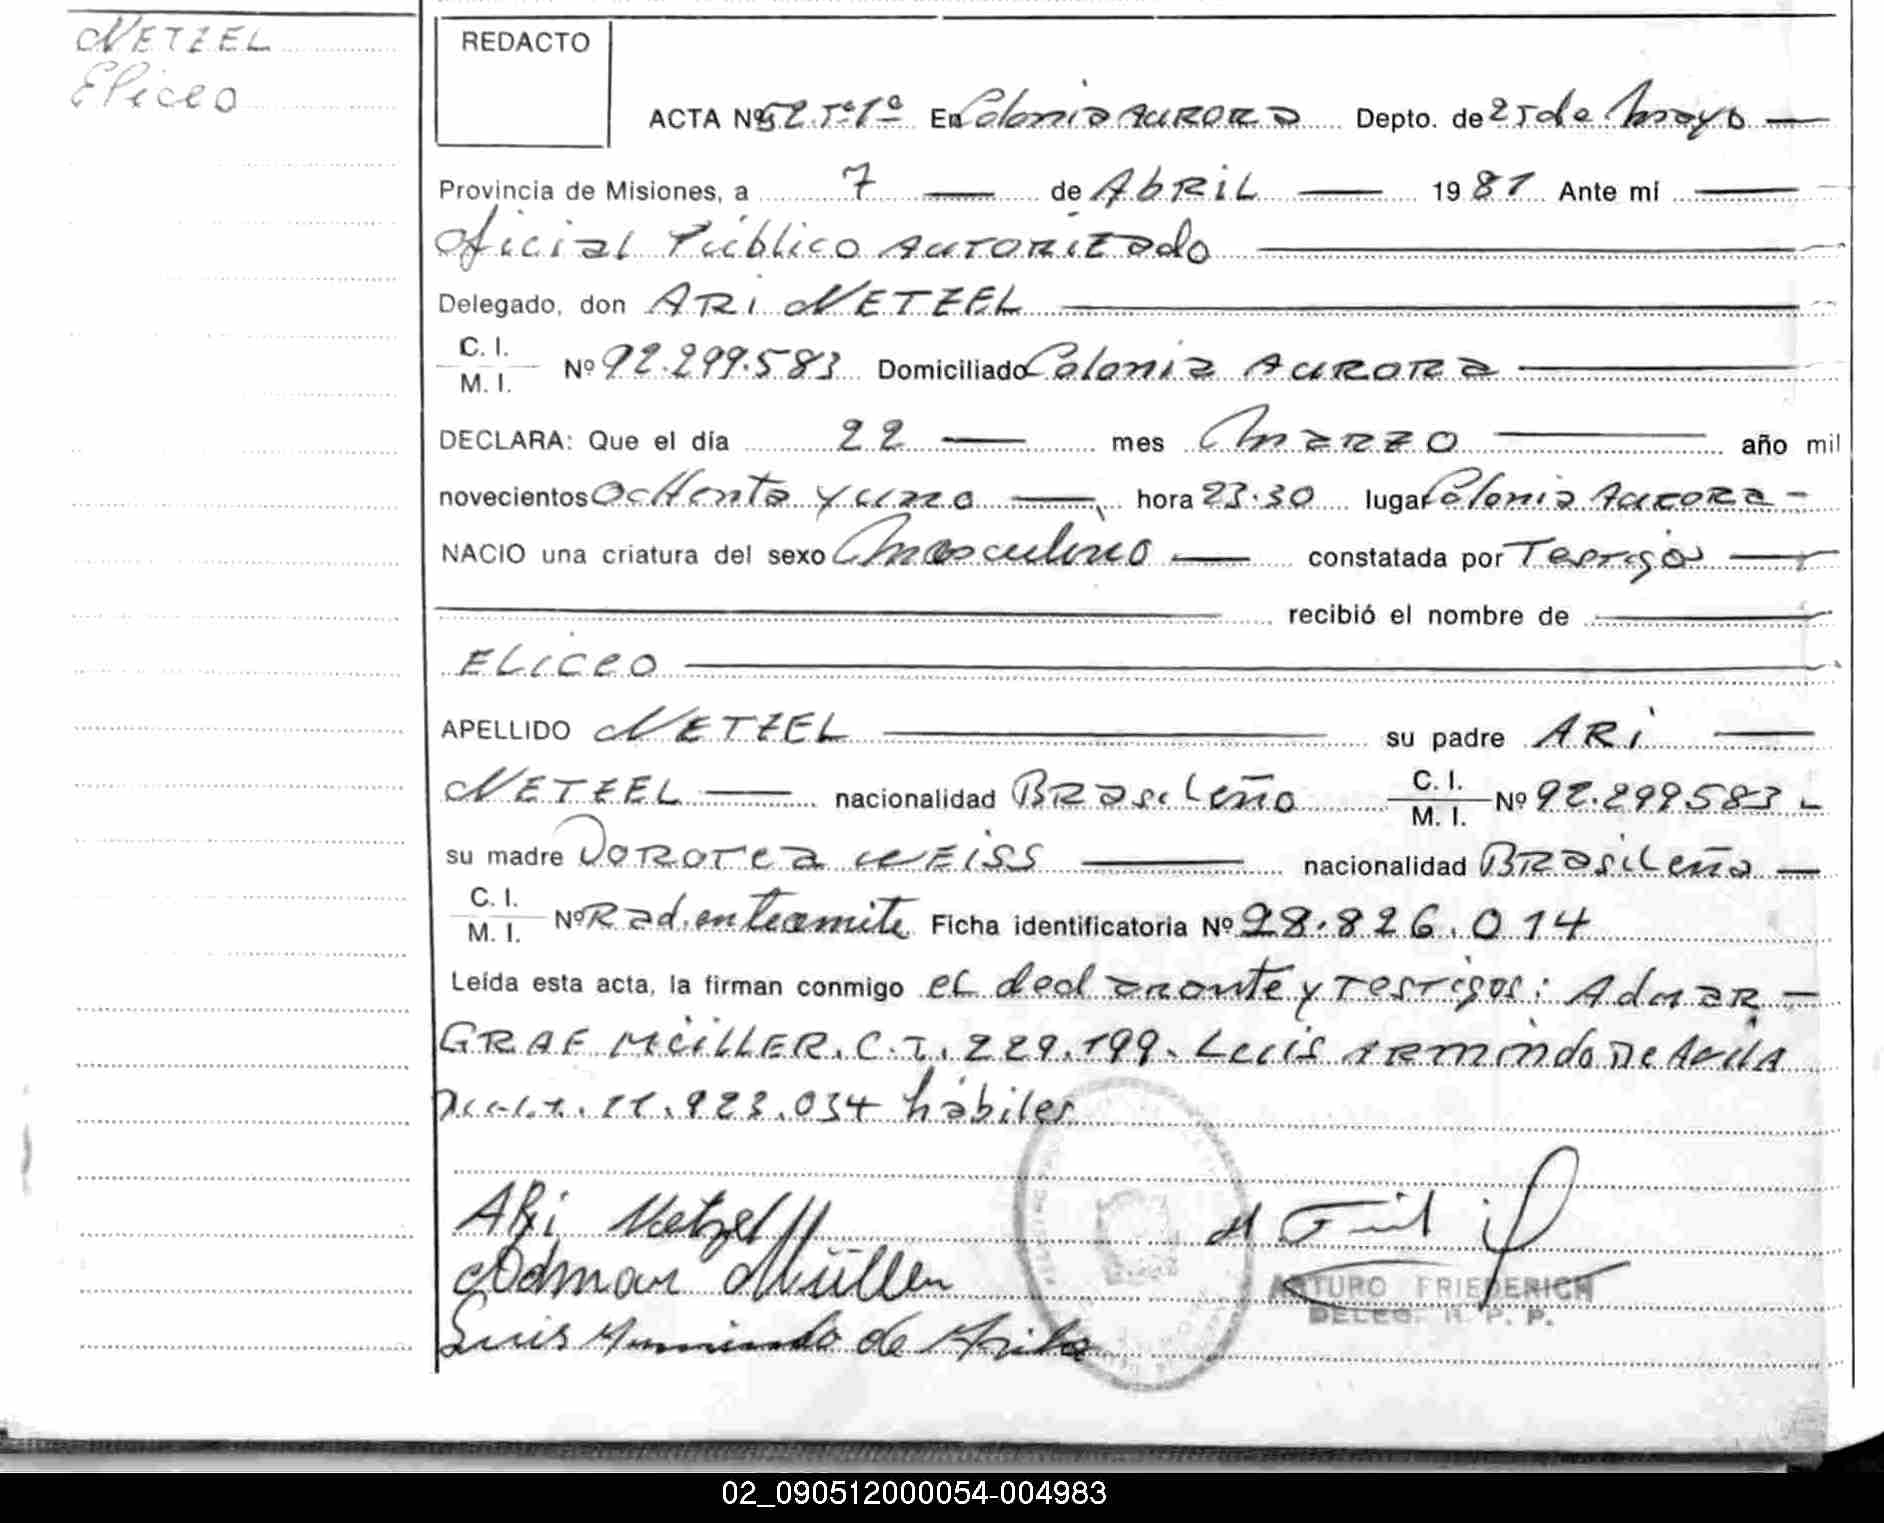 NETZEL
Eliceo
REDACTO
ACTA Nº 52 Tº 1º En Colonia AURORA Depto. de 25 de Mayo
Provincia de Misiones, a 7 de AbRiL 1981 Ante mi
Oficial Público AUTORIZado
Delegado, don ARi NETZEL
C. I.
M. I. Nº 92.299.583 Domiciliado Colonia AURORA
DECLARA: Que el día 22 mes MARZO año mil
novecientos OcHenta y uno hora 23.30 lugar Colonia AURORA
NACIO una criatura del sexo Masculino constatada por Testigos
recibió el nombre de
ELiceo
APELLIDO NETZEL su padre ARi
NETZEL nacionalidad BRasiLeño C. I.
M. I. Nº 92.299.583
su madre DOROTea WEiSS nacionalidad BRasiLeña
C. I.
M. I. Nº Rad. en tramite Ficha identificatoria Nº 28.826.014
Leída esta acta, la firman conmigo eL declarante y Testigos: AdmaR
GRAF MüLLER. C.I. 229.199. Luis ARmindo De AviLA
11.923.034 hábiles
ARi Netzel
Odmar Müller
Luis Armindo de Avila
ARTURO FRIEDERICH
DELEG. R. P. P.
02_090512000054-004983